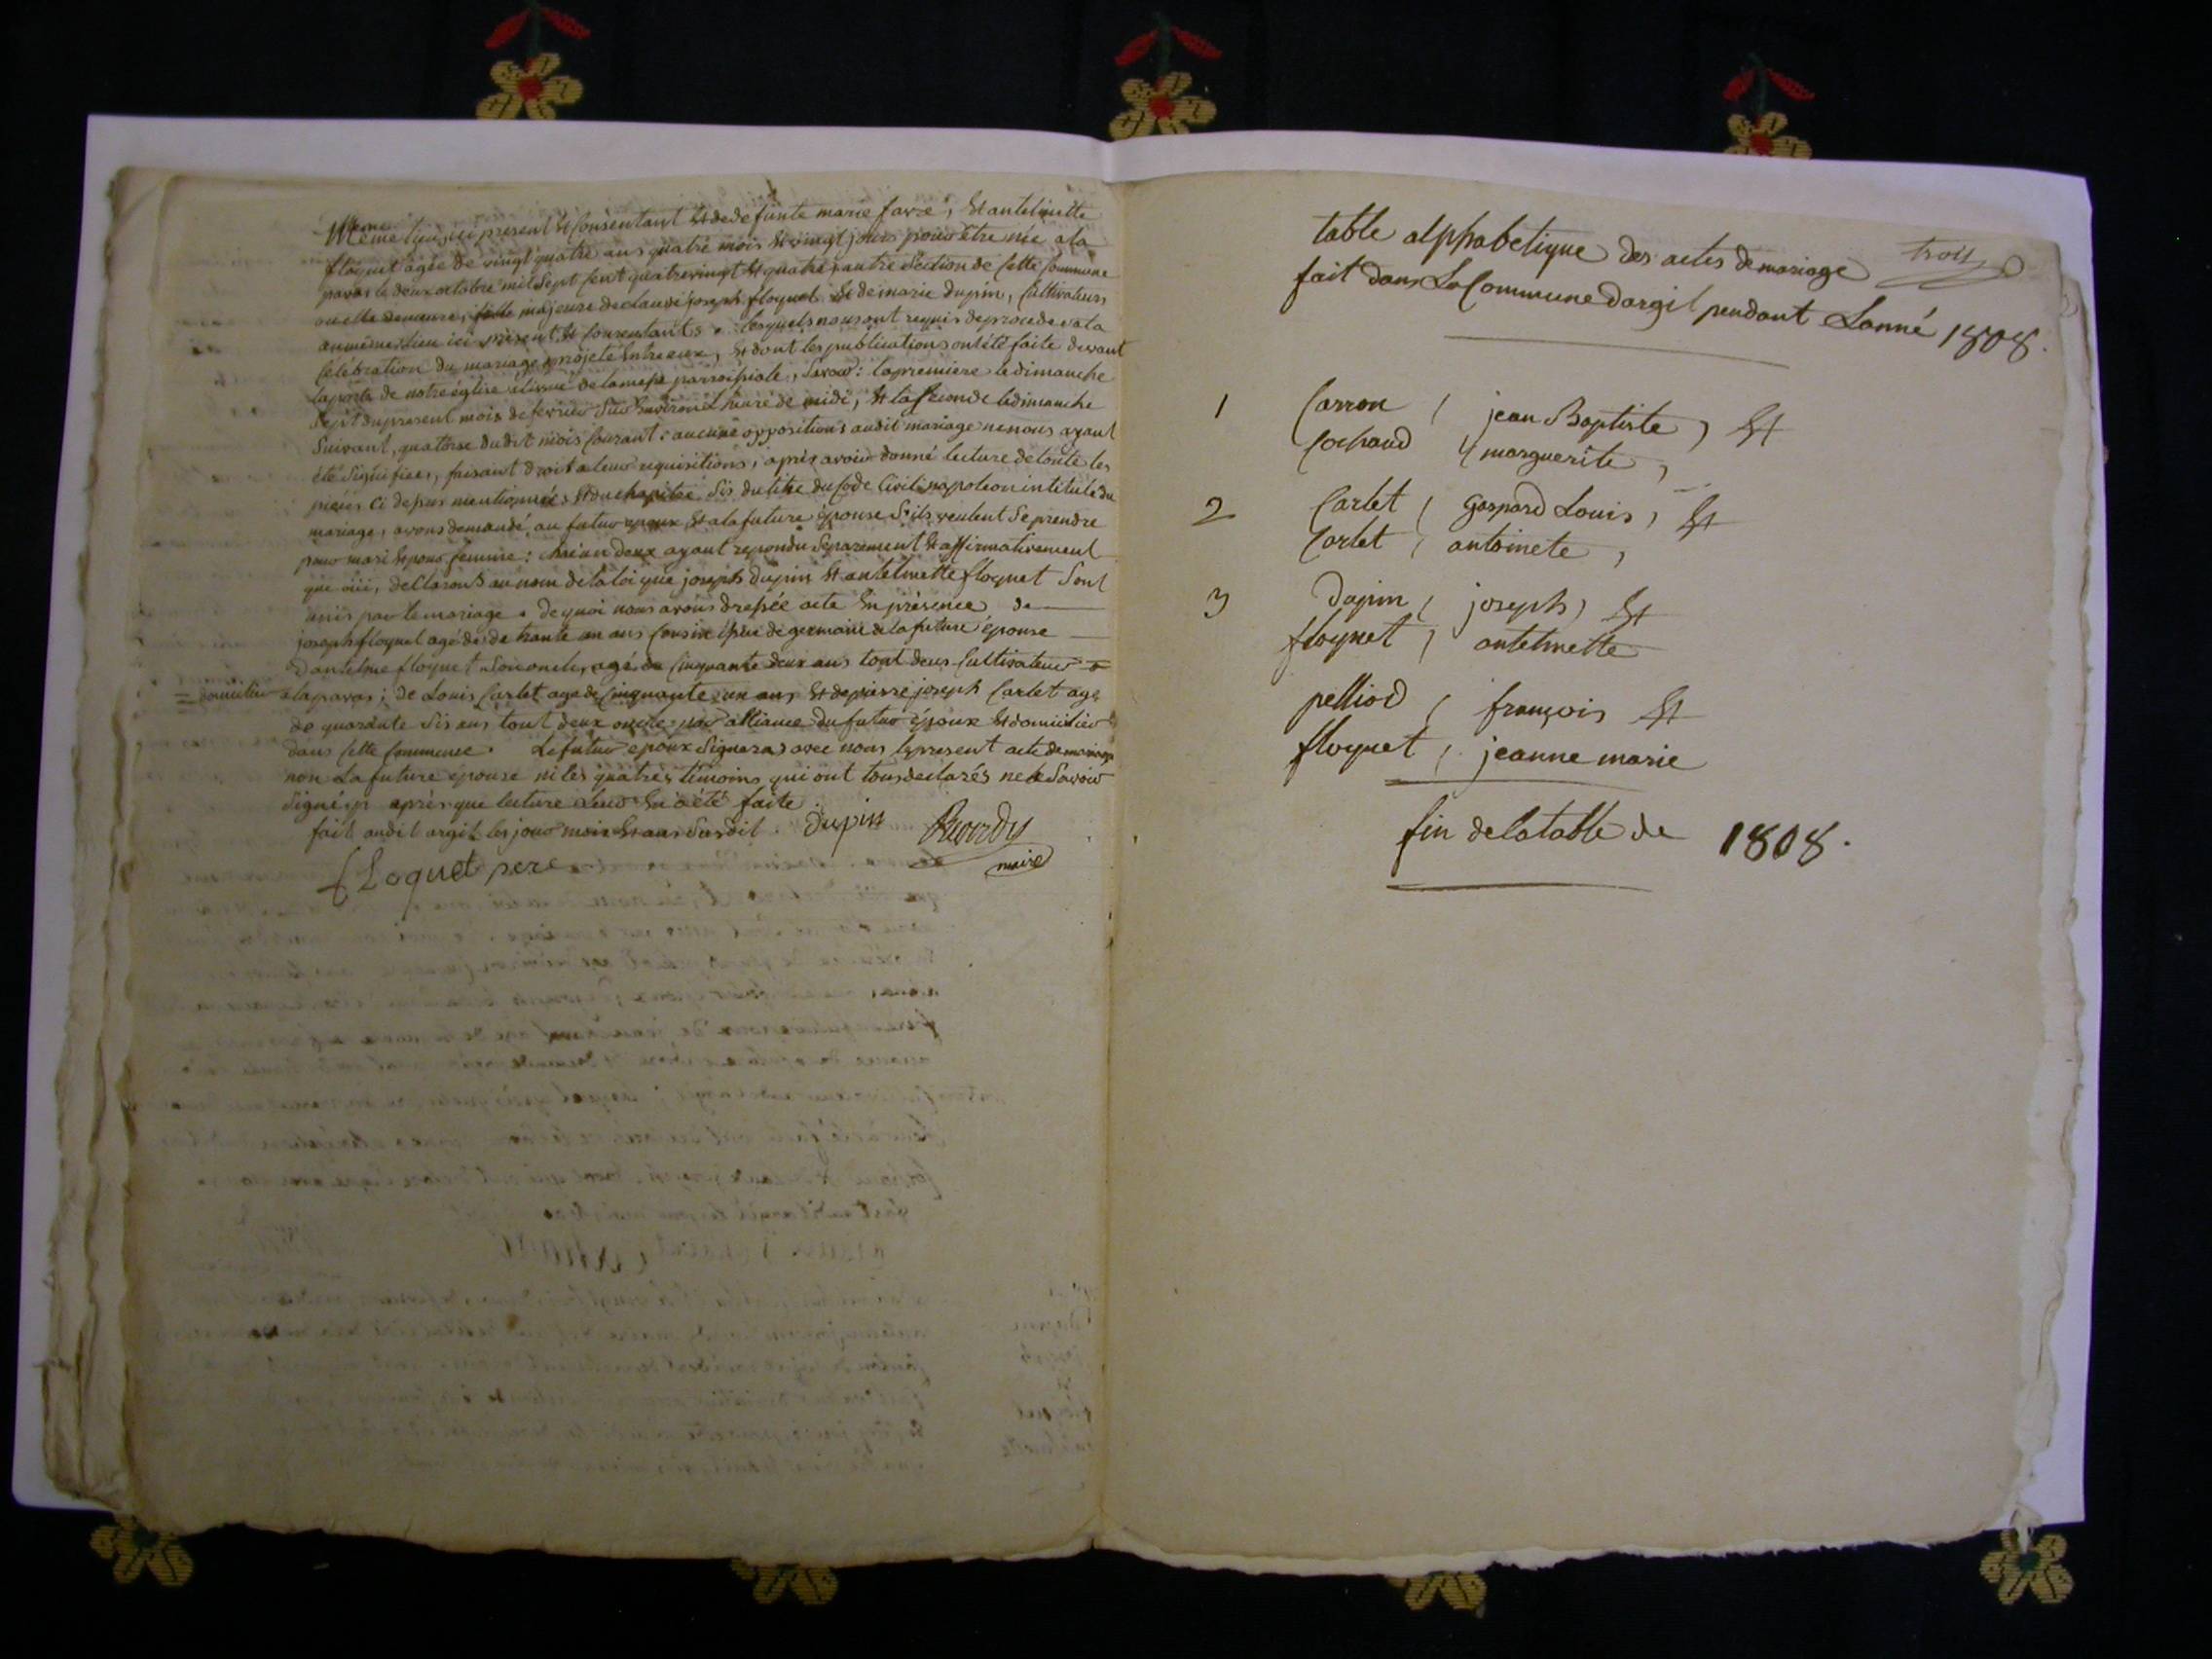 Même lieu, ici present et Consentant et de defunte marie favre, et antelmette
floquet agée de vingt quatre ans quatre mois et vingt jours pour être née a la
pavas le deux octobre mil Sept Cent quatre vingt et quatre, autre Section de Cette Commune
ou elle demeure, fille majeure de claude joseph floquet et de marie dupin, Cultivateurs
au même lieu ici présent et Consentant: lesquels nous ont requis de proceder a la
Célébration du mariage projeté Entre eux, et dont les publications ont été faite devant
la porte de notre église a l'issue de la messe parroissiale, Savoir: la premiere le dimanche
Sept du present mois de fevrier Sur Environ l'heure de midi, et la Seconde le dimanche
Suivant, quatorse dudit mois Courant: aucune oppositions audit mariage ne nous ayant
été Signifiées, faisant droit a leur requisitions, après avoir donné lecture de toute les
pièces Ci dessus mentionnées et du chapitre Six du titre du Code Civil napoleon intitulé du
mariage, avons demandé au futur epoux et a la future épouse S'ils veulent Se prendre
pour mari et pour femme: chacun deux ayant repondu Separement et affirmativement
que oui, declarons au nom de la loi que joseph dupin et antelmette floquet Sont
unis par le mariage. de quoi nous avons dressée acte En présence de
joseph floquet agé de trante un ans Cousin de germain de la future épouse
D'antelme floquet Son oncle, agé de Cinquante deux ans tout deux Cultivateurs
= domicilier a la pavas; de Louis Carlet agé de Cinquante un ans et de pierre joseph Carlet agé
de quarante Six ans, tout deux oncles par alliance du futur époux et domicilier
dans Cette Commune. Le futur epoux Signera avec nous le present acte de mariage
non La future épouse ni les quatres témoins qui ont tous declarés ne le Savoir
Signé, après que lecture Leur En a été faite.
fait audit argit les jour mois et ans Susdit. dupin
maire
fLoquet pere
trois
table alphabetique des actes de mariage
fait dans La Commune dargit pendant Lanné 1808.
1 Carron, jean Baptiste, Et
Cochaud, marguerite,
2 Carlet, gaspard Louis, Et
Carlet, antoinete,
3 Dupin, joseph, Et
floquet, antelmette
pelliod, françois Et
floquet, jeanne marie
fin de la table de 1808.